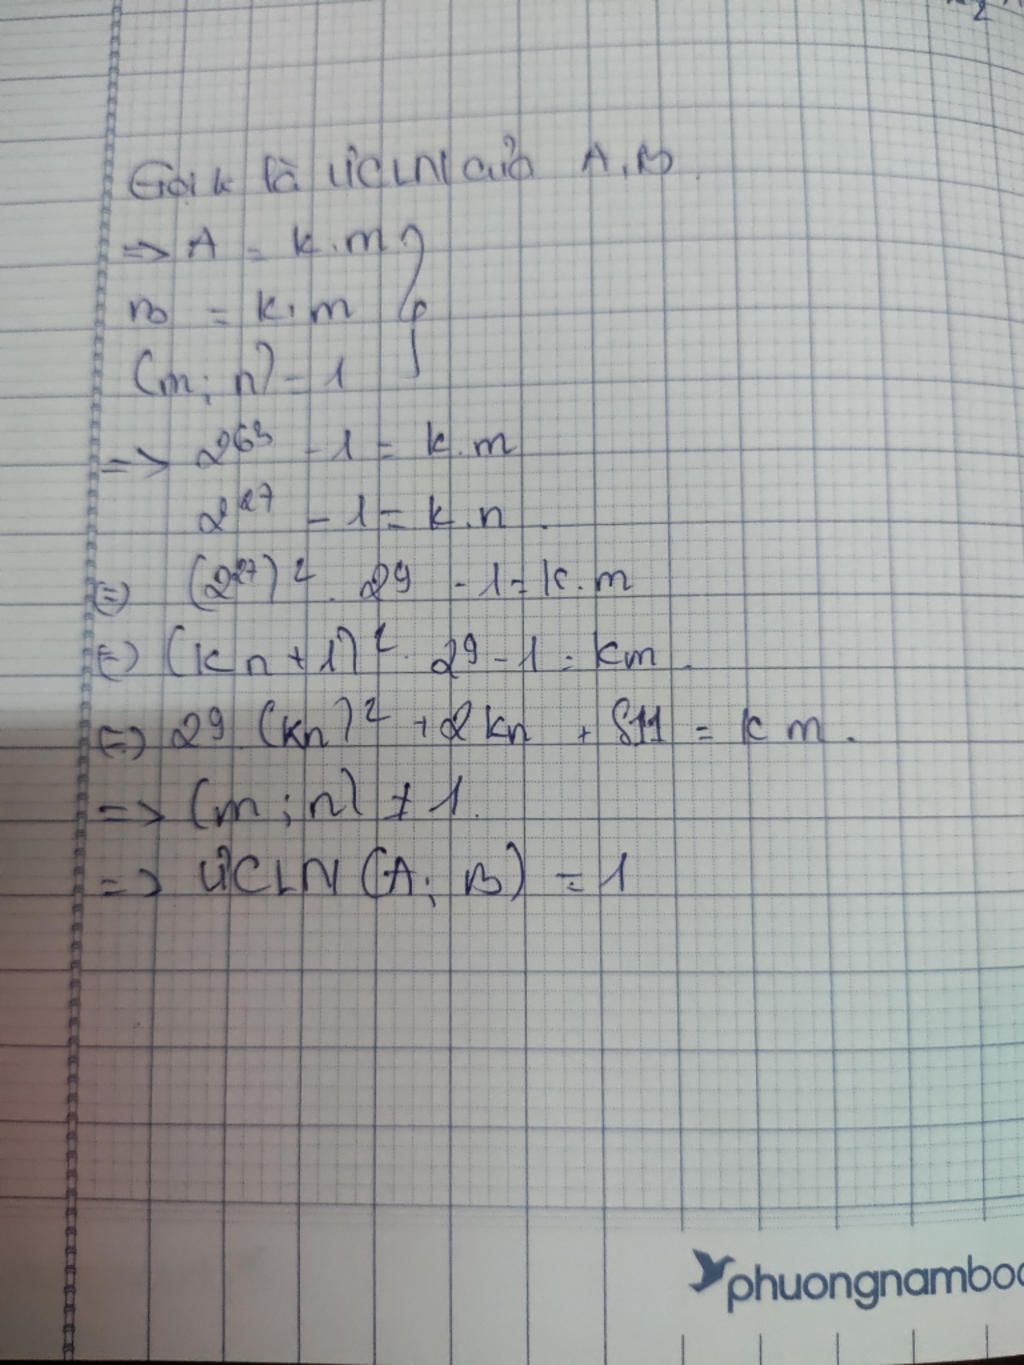 Gọi k là ƯCLN của A, B.
=> A = k.m
B = k.m
(m; n) = 1
=> 2^63 - 1 = k.m
2^27 - 1 = k.n.
(=) (2^27)^2 . 29 - 1 = k.m
(=) (kn + 1)^2 . 29 - 1 = km.
(=) 29.(kn)^2 + 2kn + 511 = k m.
=> (m; n) ≠ 1.
=> ƯCLN (A; B) = 1
phuongnamboo